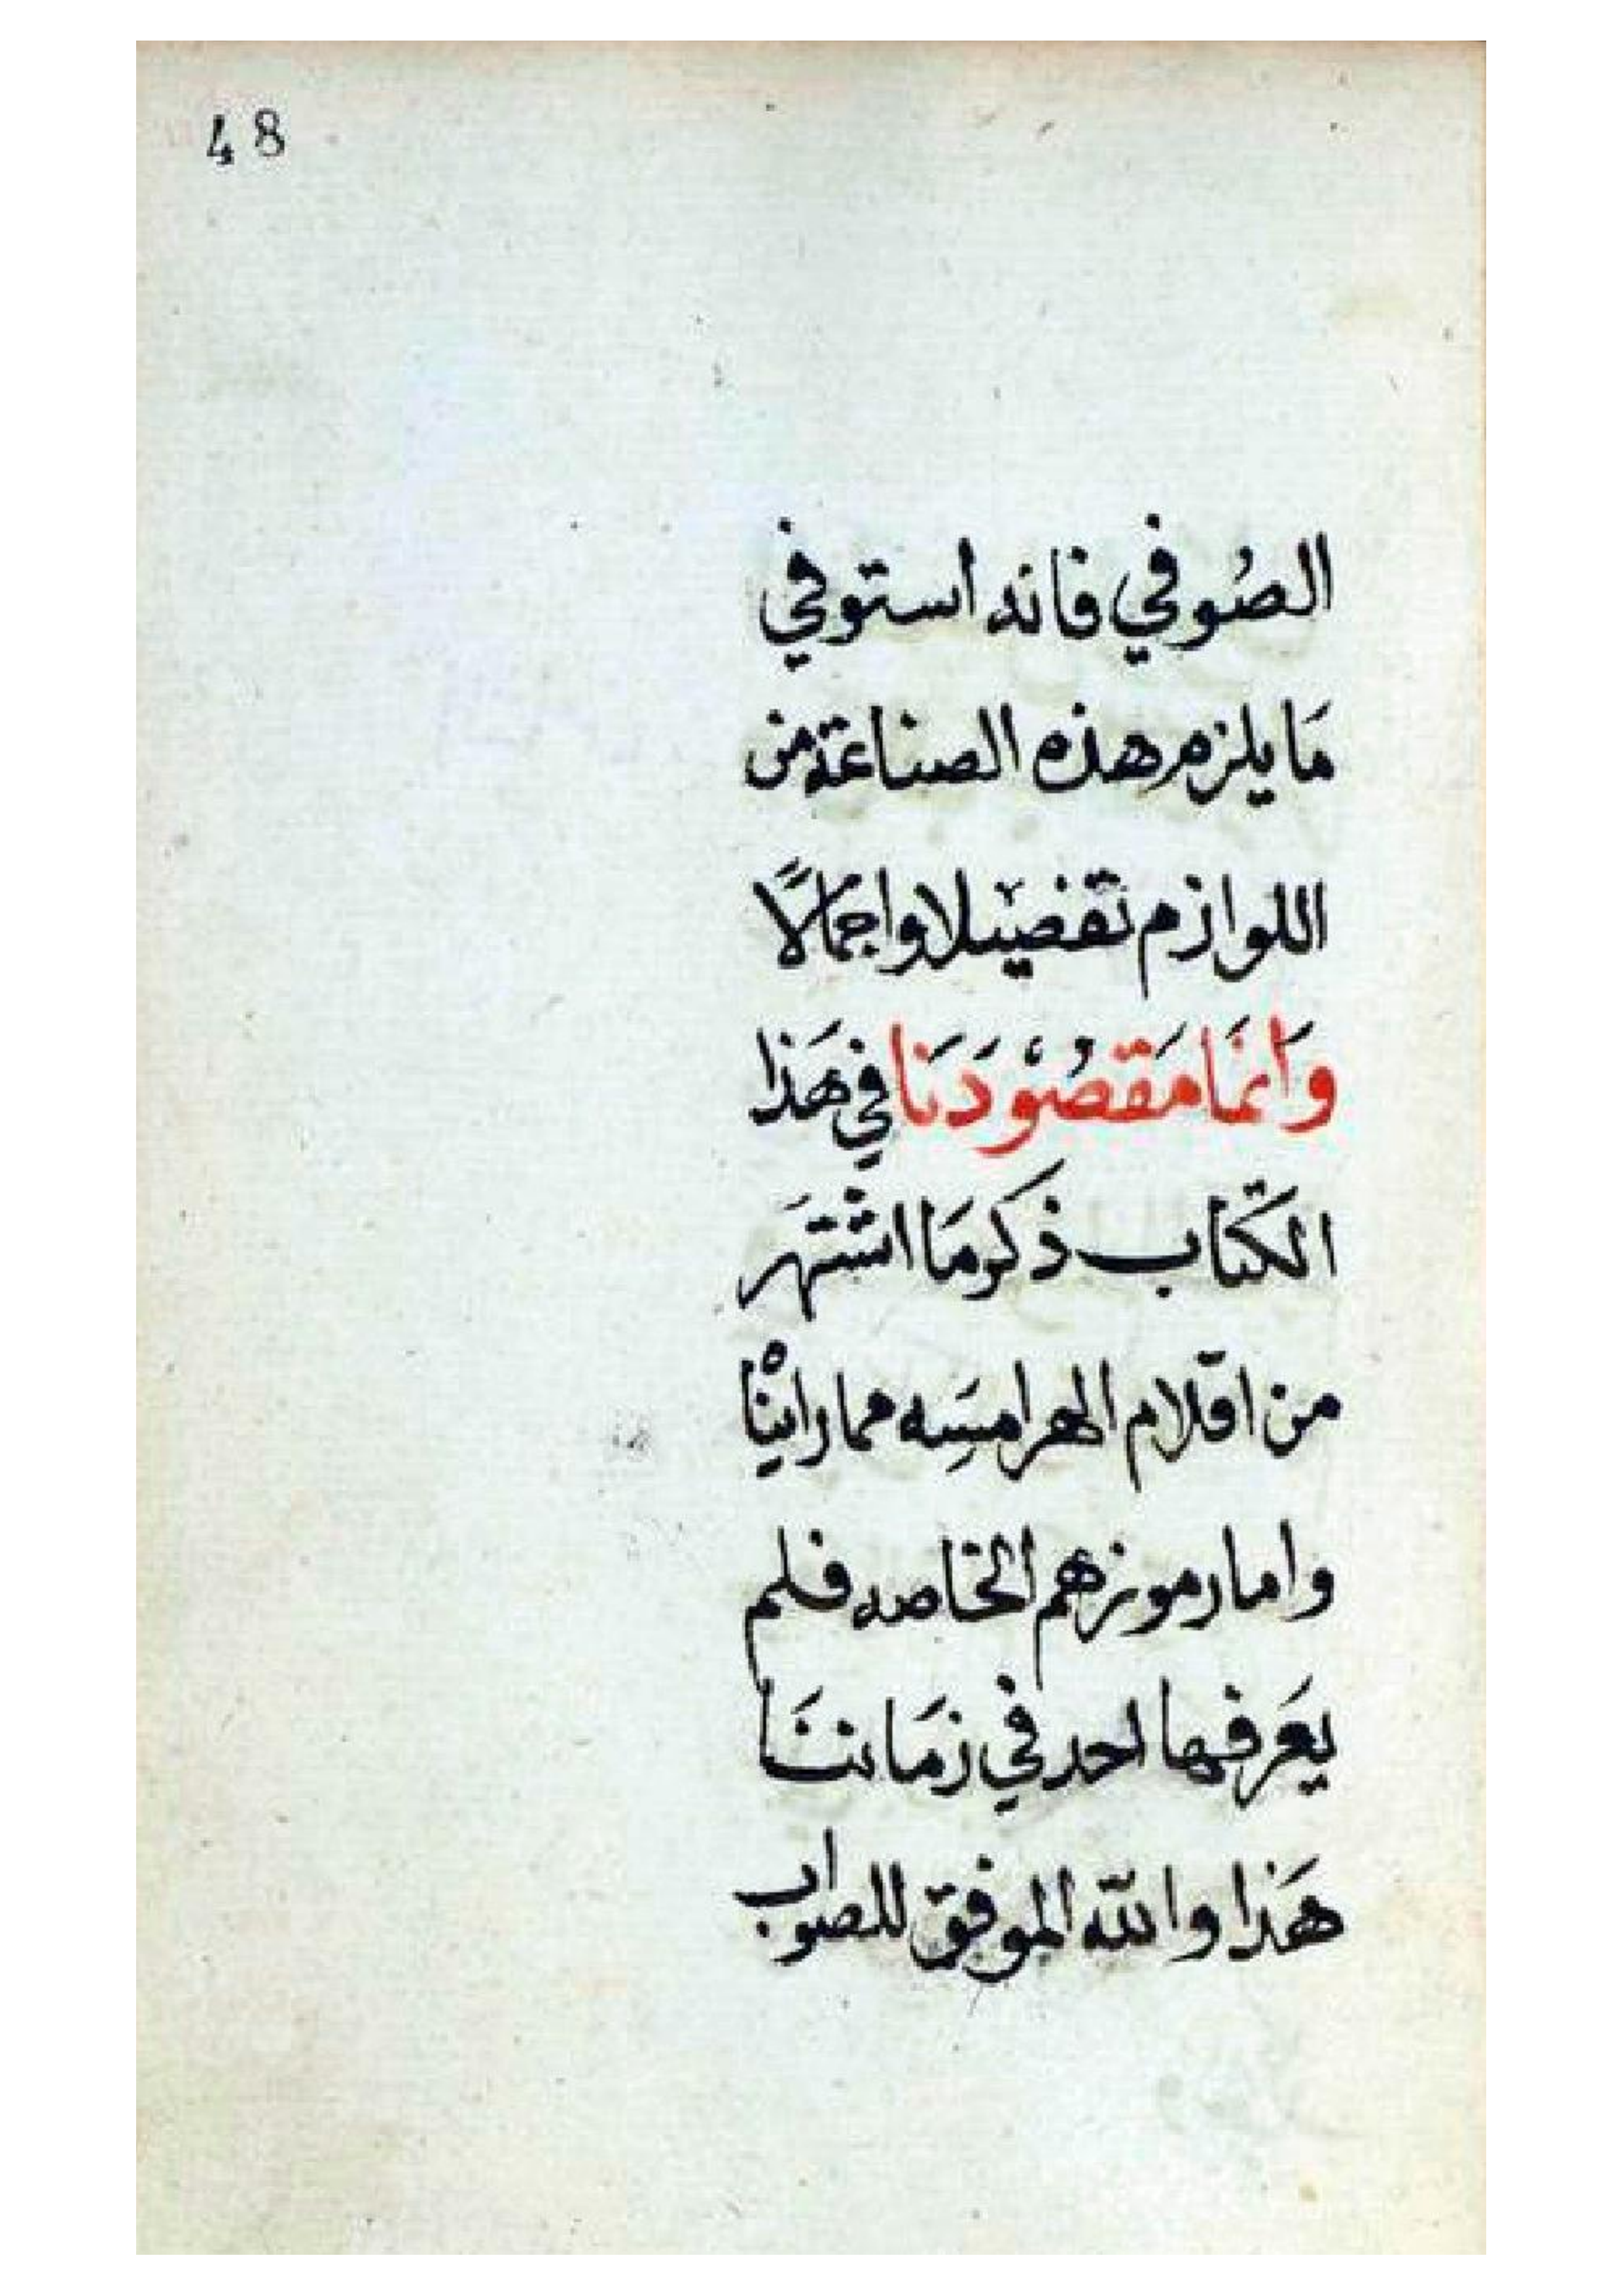 48
الصُوفي فانه استوفي
مَا يلزم هذه الصناعة من
اللوازم تفضيلا واجمالًا
وَانمَا مَقصُوْدَنَا في هَذا
الكتَاب ذكر مَا اشتهَر
من اقلام الهرامسِه مما راينْا
واما رموزهم الخاصه فلم
يعَرفها احد في زمَاننَا
هَذا والله الموفق للصواب